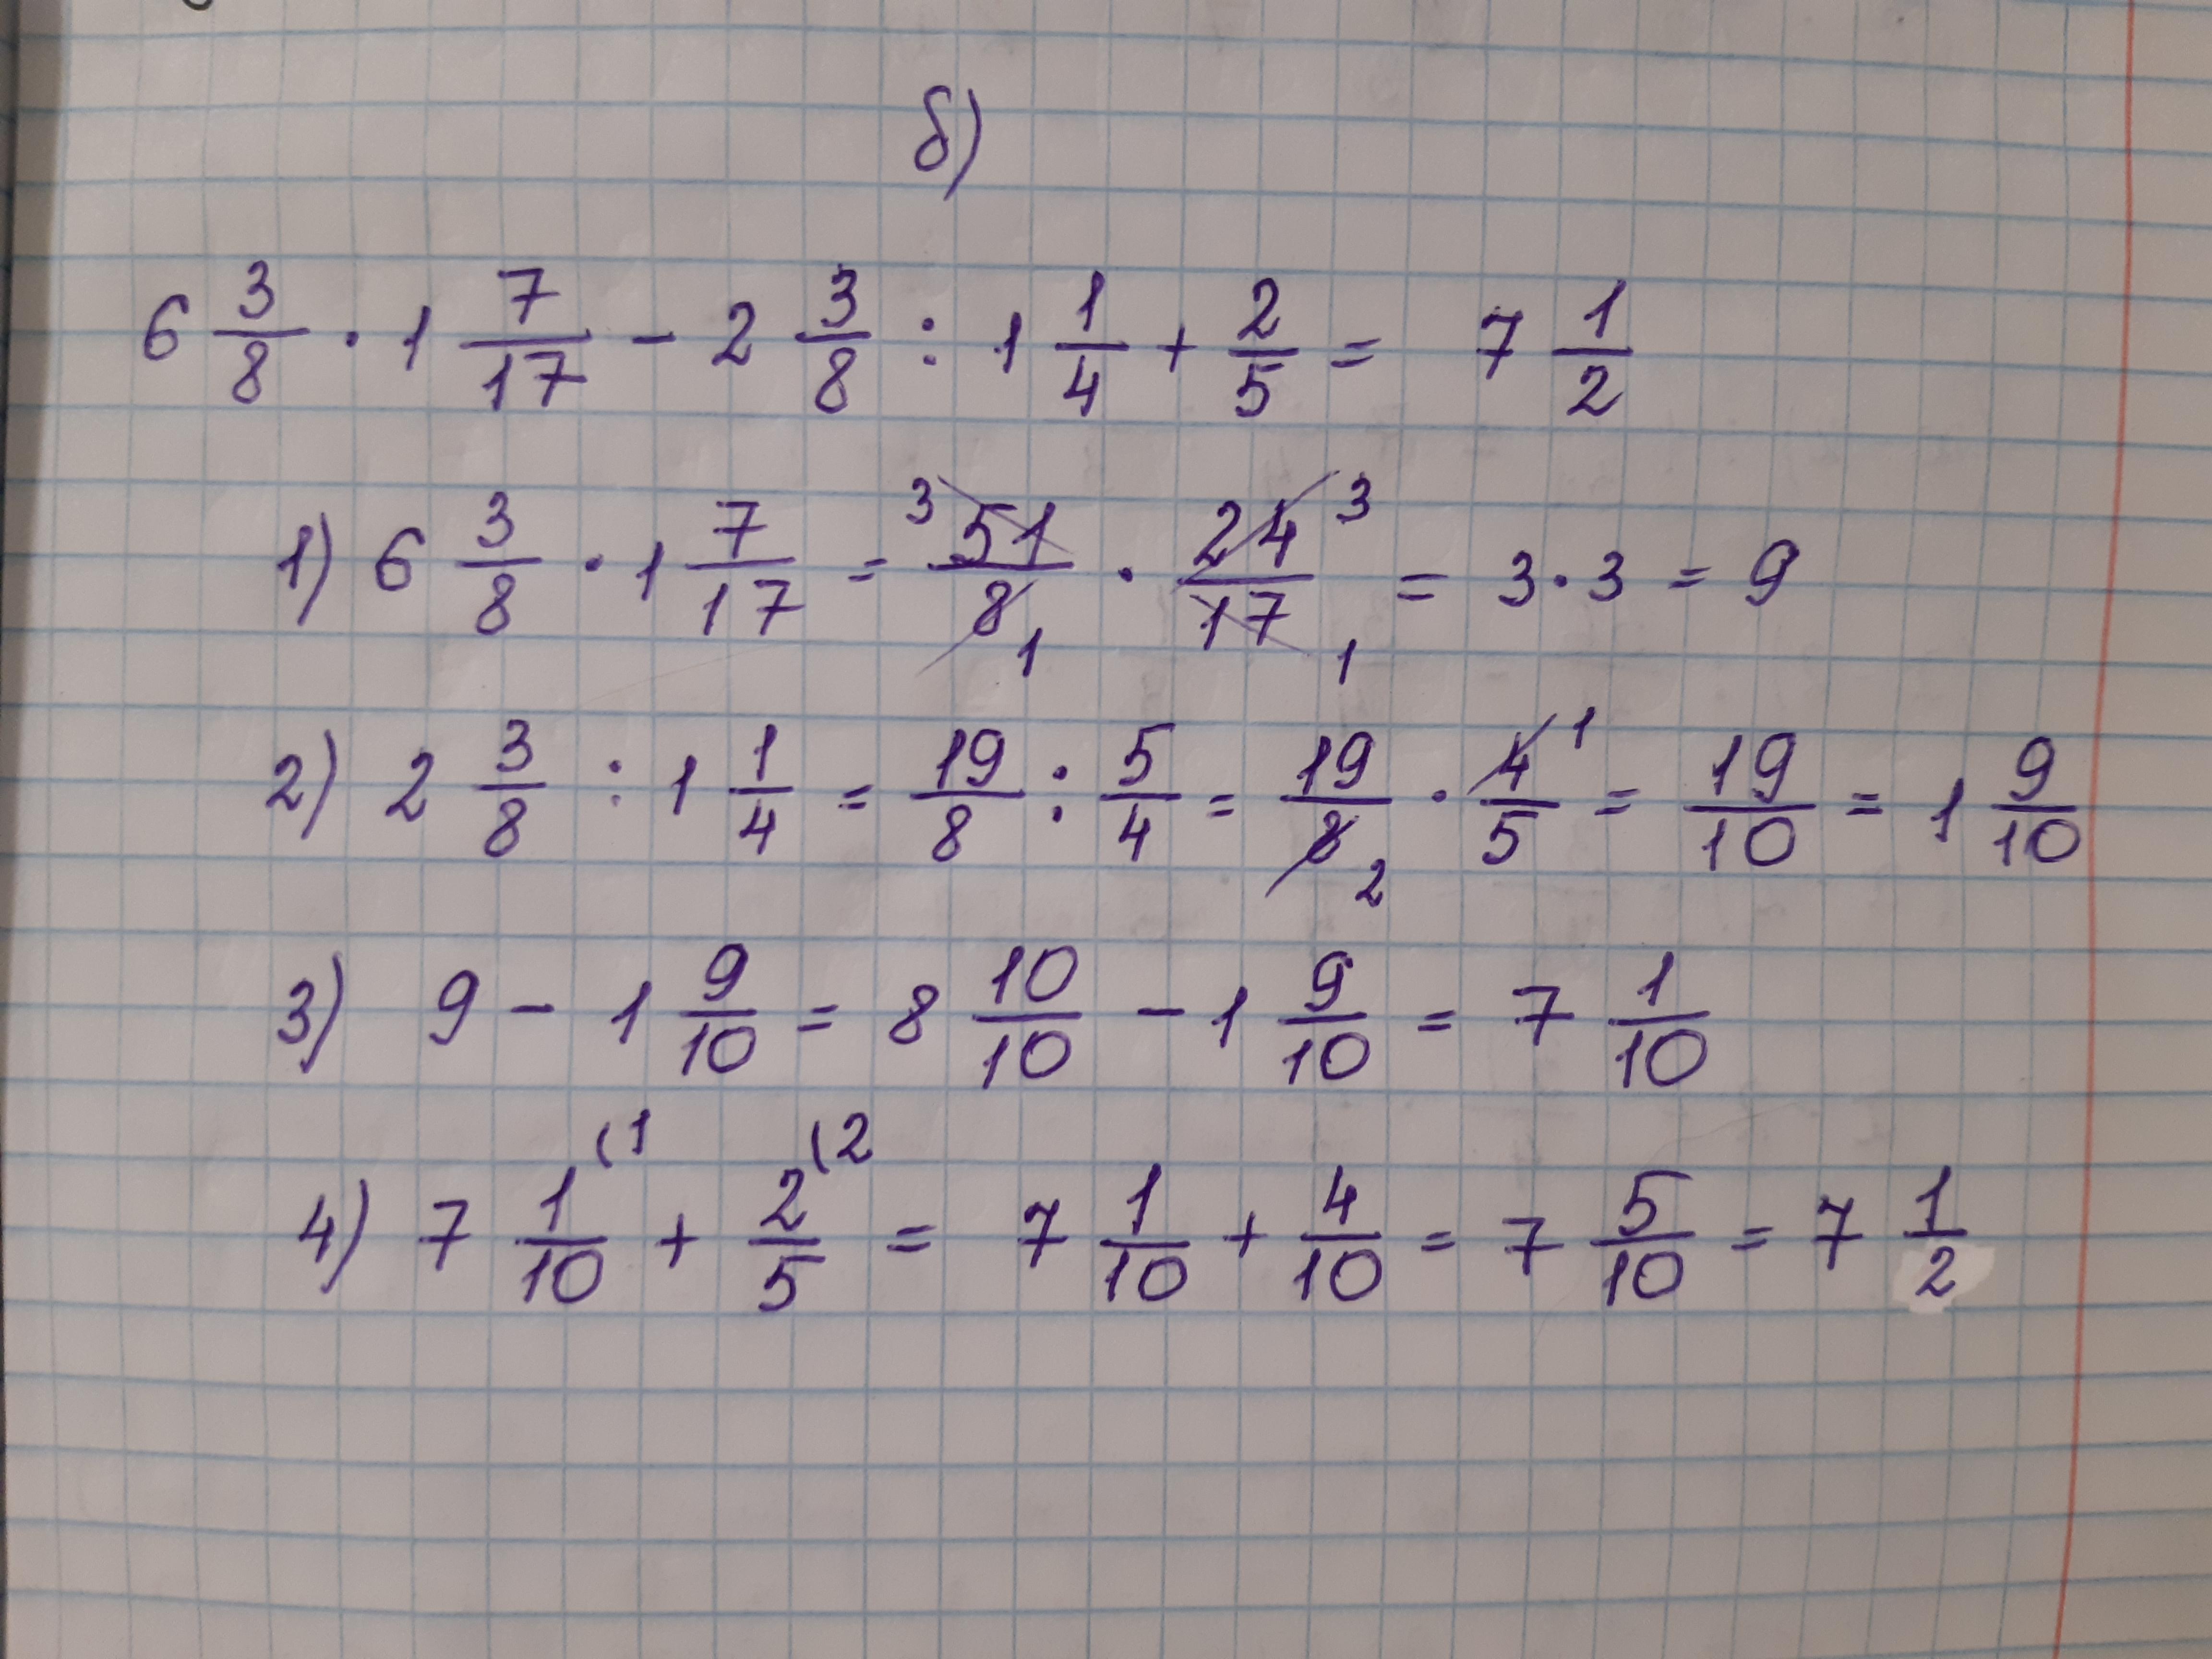 б)
6 3/8 · 1 7/17 - 2 3/8 : 1 1/4 + 2/5 = 7 1/2
1) 6 3/8 · 1 7/17 = 3 51/8 1 · 24/17 3 1 = 3 · 3 = 9
2) 2 3/8 : 1 1/4 = 19/8 : 5/4 = 19/8 2 · 4/5 1 = 19/10 = 1 9/10
3) 9 - 1 9/10 = 8 10/10 - 1 9/10 = 7 1/10
4) 7 1/10 (1 + 2/5 (2 = 7 1/10 + 4/10 = 7 5/10 = 7 1/2